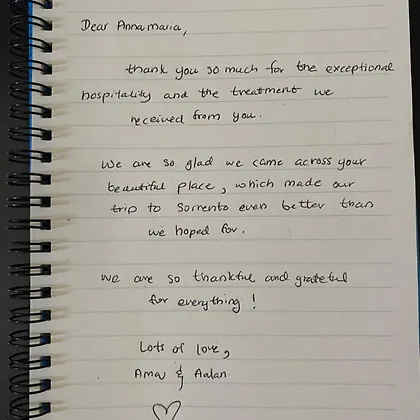 Dear Annamaria,
thank you so much for the exceptional
hospitality and the treatment we
received from you.
we are so glad we came across your
beautiful place, which made our
trip to Sorrento even better than
we hoped for.
we are so thankful and grateful
for everything!
Lots of love,
& Aalan